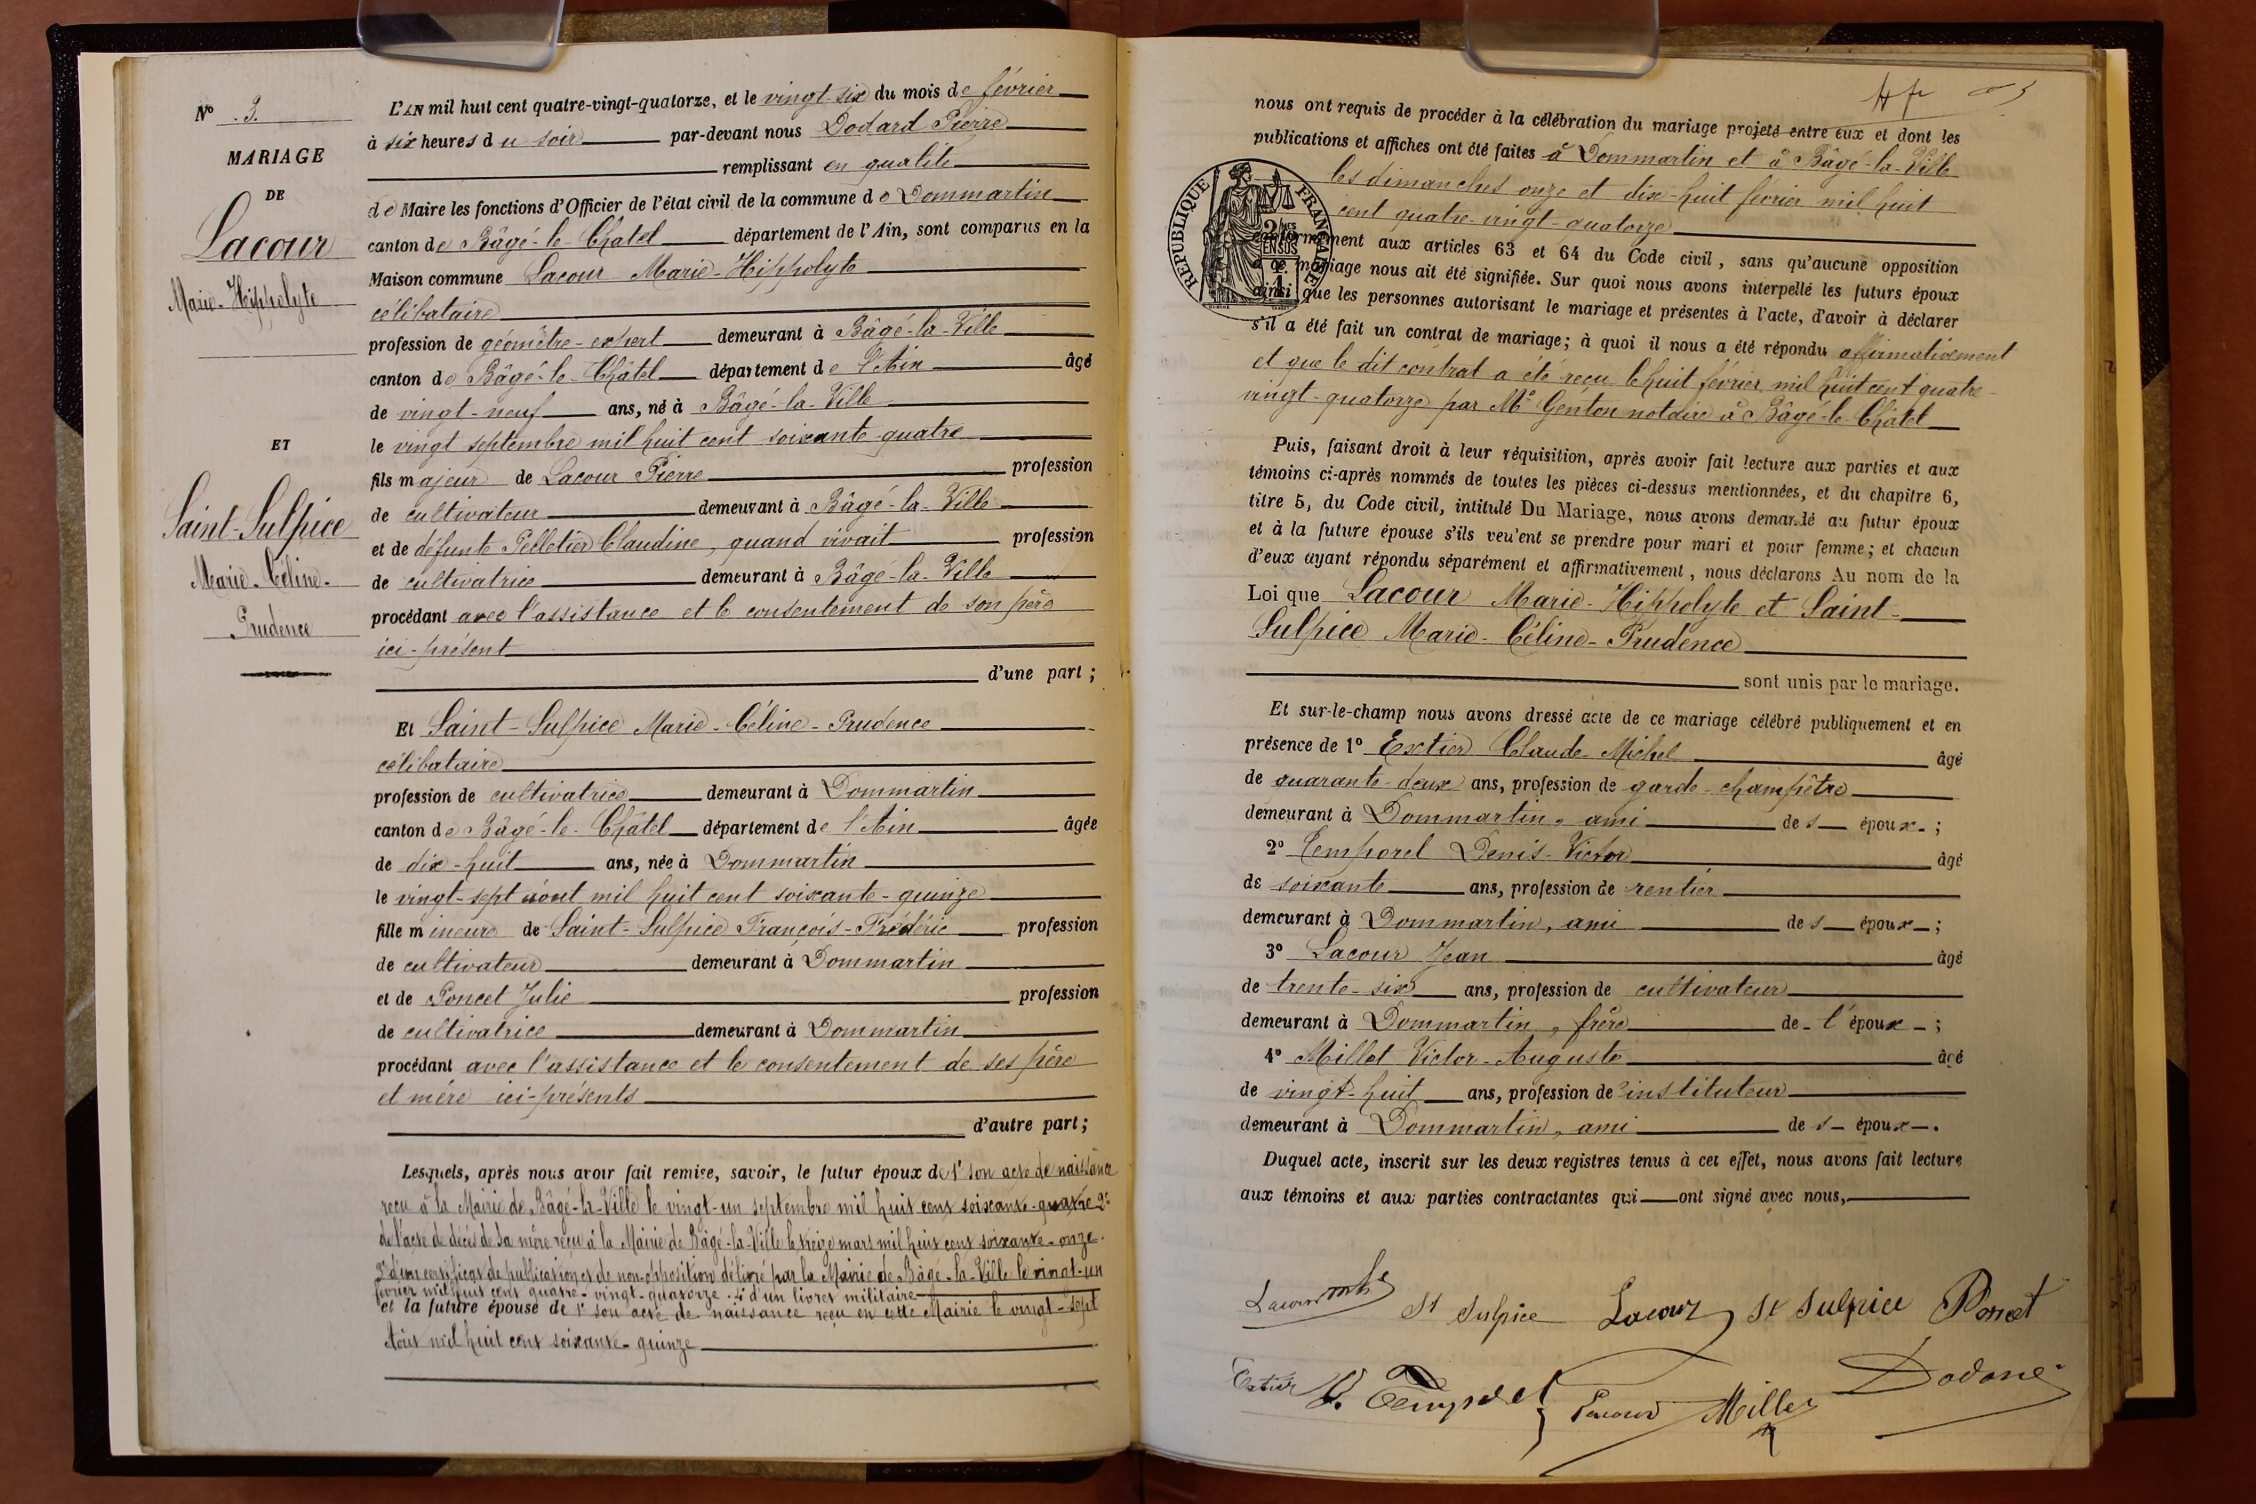 N° 3.
MARIAGE
DE
Lacour
Marie-Hippolyte
ET
Saint-Sulpice
Marie-Céline-
Prudence
L'AN mil huit cent quatre-vingt-quatorze, et le vingt-six du mois de février
à six heures du soir par-devant nous Dodard Pierre
remplissant en qualité
de Maire les fonctions d'Officier de l'état civil de la commune de Dommartin
canton de Bâgé-le-Châtel département de l'Ain, sont comparus en la
Maison commune Lacour Marie-Hippolyte
célibataire
profession de géomètre-expert demeurant à Bâgé-la-Ville
canton de Bâgé-le-Châtel département de l'Ain âgé
de vingt-neuf ans, né à Bâgé-la-Ville
le vingt septembre mil huit cent soixante-quatre
fils majeur de Lacour Pierre profession
de cultivateur demeurant à Bâgé-la-Ville
et de défunte Pelletier Claudine, quand vivait profession
de cultivatrice demeurant à Bâgé-la-Ville
procédant avec l'assistance et le consentement de son père
ici-présent
d'une part ;
Et Saint-Sulpice Marie-Céline-Prudence
célibataire
profession de cultivatrice demeurant à Dommartin
canton de Bâgé-le-Châtel département de l'Ain âgée
de dix-huit ans, née à Dommartin
le vingt-sept août mil huit cent soixante-quinze
fille mineure de Saint-Sulpice François-Frédéric profession
de cultivateur demeurant à Dommartin
et de Poncet Julie profession
de cultivatrice demeurant à Dommartin
procédant avec l'assistance et le consentement de ses père
et mère ici-présents
d'autre part ;
Lesquels, après nous avoir fait remise, savoir, le futur époux de 1° son acte de naissance
reçu à la Mairie de Bâgé-la-Ville le vingt-un septembre mil huit cent soixante-quatre 2°
de l'acte de décès de sa mère reçu à la Mairie de Bâgé-la-Ville le treize mars mil huit cent soixante-onze.
3° d'un certificat de publications et de non-opposition délivré par la Mairie de Bâgé-la-Ville le vingt-un
février mil huit cent quatre-vingt-quatorze. 4° d'un livret militaire
et la future épouse de 1° son acte de naissance reçu en cette Mairie le vingt-sept
Août mil huit cent soixante-quinze
nous ont requis de procéder à la célébration du mariage projeté entre eux et dont les
publications et affiches ont été faites à Dommartin et à Bâgé-la-Ville
les dimanches onze et dix-huit février mil huit
cent quatre-vingt-quatorze
conformément aux articles 63 et 64 du Code civil, sans qu'aucune opposition
à ce mariage nous ait été signifiée. Sur quoi nous avons interpellé les futurs époux
ainsi que les personnes autorisant le mariage et présentes à l'acte, d'avoir à déclarer
s'il a été fait un contrat de mariage ; à quoi il nous a été répondu affirmativement
et que le dit contrat a été reçu le huit février mil huit cent quatre-
vingt-quatorze par Me Genton notaire à Bâgé-le-Châtel
RÉPUBLIQUE FRANÇAISE
2/10es
EN SUS
Puis, faisant droit à leur réquisition, après avoir fait lecture aux parties et aux
témoins ci-après nommés de toutes les pièces ci-dessus mentionnées, et du chapitre 6,
titre 5, du Code civil, intitulé Du Mariage, nous avons demandé au futur époux
et à la future épouse s'ils veulent se prendre pour mari et pour femme ; et chacun
d'eux ayant répondu séparément et affirmativement, nous déclarons Au nom de la
Loi que Lacour Marie-Hippolyte et Saint-
Sulpice Marie-Céline-Prudence
sont unis par le mariage.
Et sur-le-champ nous avons dressé acte de ce mariage célébré publiquement et en
présence de 1° Extier Claude-Michel âgé
de quarante-deux ans, profession de garde-champêtre
demeurant à Dommartin, ami des époux ;
2° Temporel Denis-Victor âgé
de soixante ans, profession de rentier
demeurant à Dommartin, ami des époux ;
3° Lacour Jean âgé
de trente-six ans, profession de cultivateur
demeurant à Dommartin, frère de l'époux ;
4° Millet Victor-Auguste âgé
de vingt-huit ans, profession de instituteur
demeurant à Dommartin, ami des époux.
Duquel acte, inscrit sur les deux registres tenus à cet effet, nous avons fait lecture
aux témoins et aux parties contractantes qui ont signé avec nous,
Lacour mh St Sulpice Lacour St Sulpice Poncet
Extier D. Temporel Lacour Millet Dodard